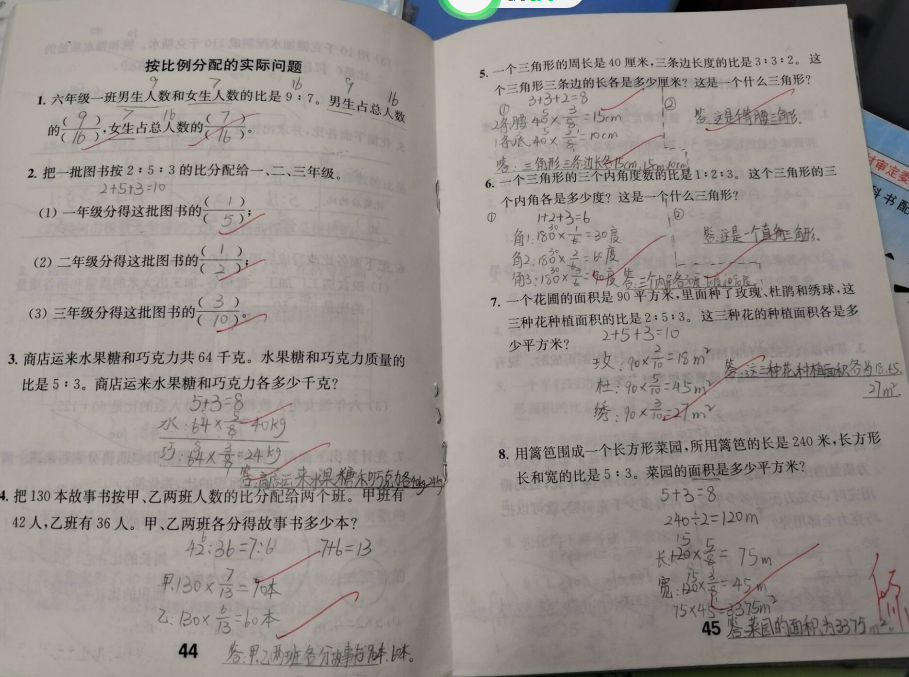 按比例分配的实际问题
9 7 16 9 16
1. 六年级一班男生人数和女生人数的比是 9∶7。男生占总人数
7 16
的(9)/(16),女生占总人数的(7)/(16)。
2. 把一批图书按 2∶5∶3 的比分配给一、二、三年级。
2+5+3=10
(1) 一年级分得这批图书的(1)/(5);
(2) 二年级分得这批图书的(1)/(2);
(3) 三年级分得这批图书的(3)/(10)。
3. 商店运来水果糖和巧克力共 64 千克。水果糖和巧克力质量的
比是 5∶3。商店运来水果糖和巧克力各多少千克?
5+3=8
水:64×5/8=40kg
巧:64×3/8=24kg
答:商店运来水果糖和巧克力各40kg,24kg
4. 把 130 本故事书按甲、乙两班人数的比分配给两个班。甲班有
42 人,乙班有 36 人。甲、乙两班各分得故事书多少本?
42:36=7:6 7+6=13
甲:130×7/13=70本
乙:130×6/13=60本
答:甲、乙两班各分故事书70本,60本。
44
5. 一个三角形的周长是 40 厘米,三条边长度的比是 3∶3∶2。这
个三角形三条边的长各是多少厘米?这是一个什么三角形?
① 3+3+2=8 ②
2条腰40×3/8=15cm 答:这是个等腰三角形.
1条底40×2/8=10cm
答:三角形三条边长各15cm,15cm,10cm
6. 一个三角形的三个内角度数的比是 1∶2∶3。这个三角形的三
个内角各是多少度?这是一个什么三角形?
① 1+2+3=6 ②
角1:180×1/6=30度 答:这是一个直角三角形.
角2:180×2/6=60度
角3:180×3/6=90度 答:三个内角各30度,60度,90度。
7. 一个花圃的面积是 90 平方米,里面种了玫瑰、杜鹃和绣球,这
三种花种植面积的比是 2∶5∶3。这三种花的种植面积各是多
少平方米?
2+5+3=10
玫:90×2/10=18m²
杜:90×5/10=45m² 答:这三种花种植面积各为18,45,
绣:90×3/10=27m² 27m²
8. 用篱笆围成一个长方形菜园,所用篱笆的长是 240 米,长方形
长和宽的比是 5∶3。菜园的面积是多少平方米?
5+3=8
240÷2=120m
长:120×5/8=75m
宽:120×3/8=45m
75×45=3375m²
45 答:菜园的面积为3375m²。